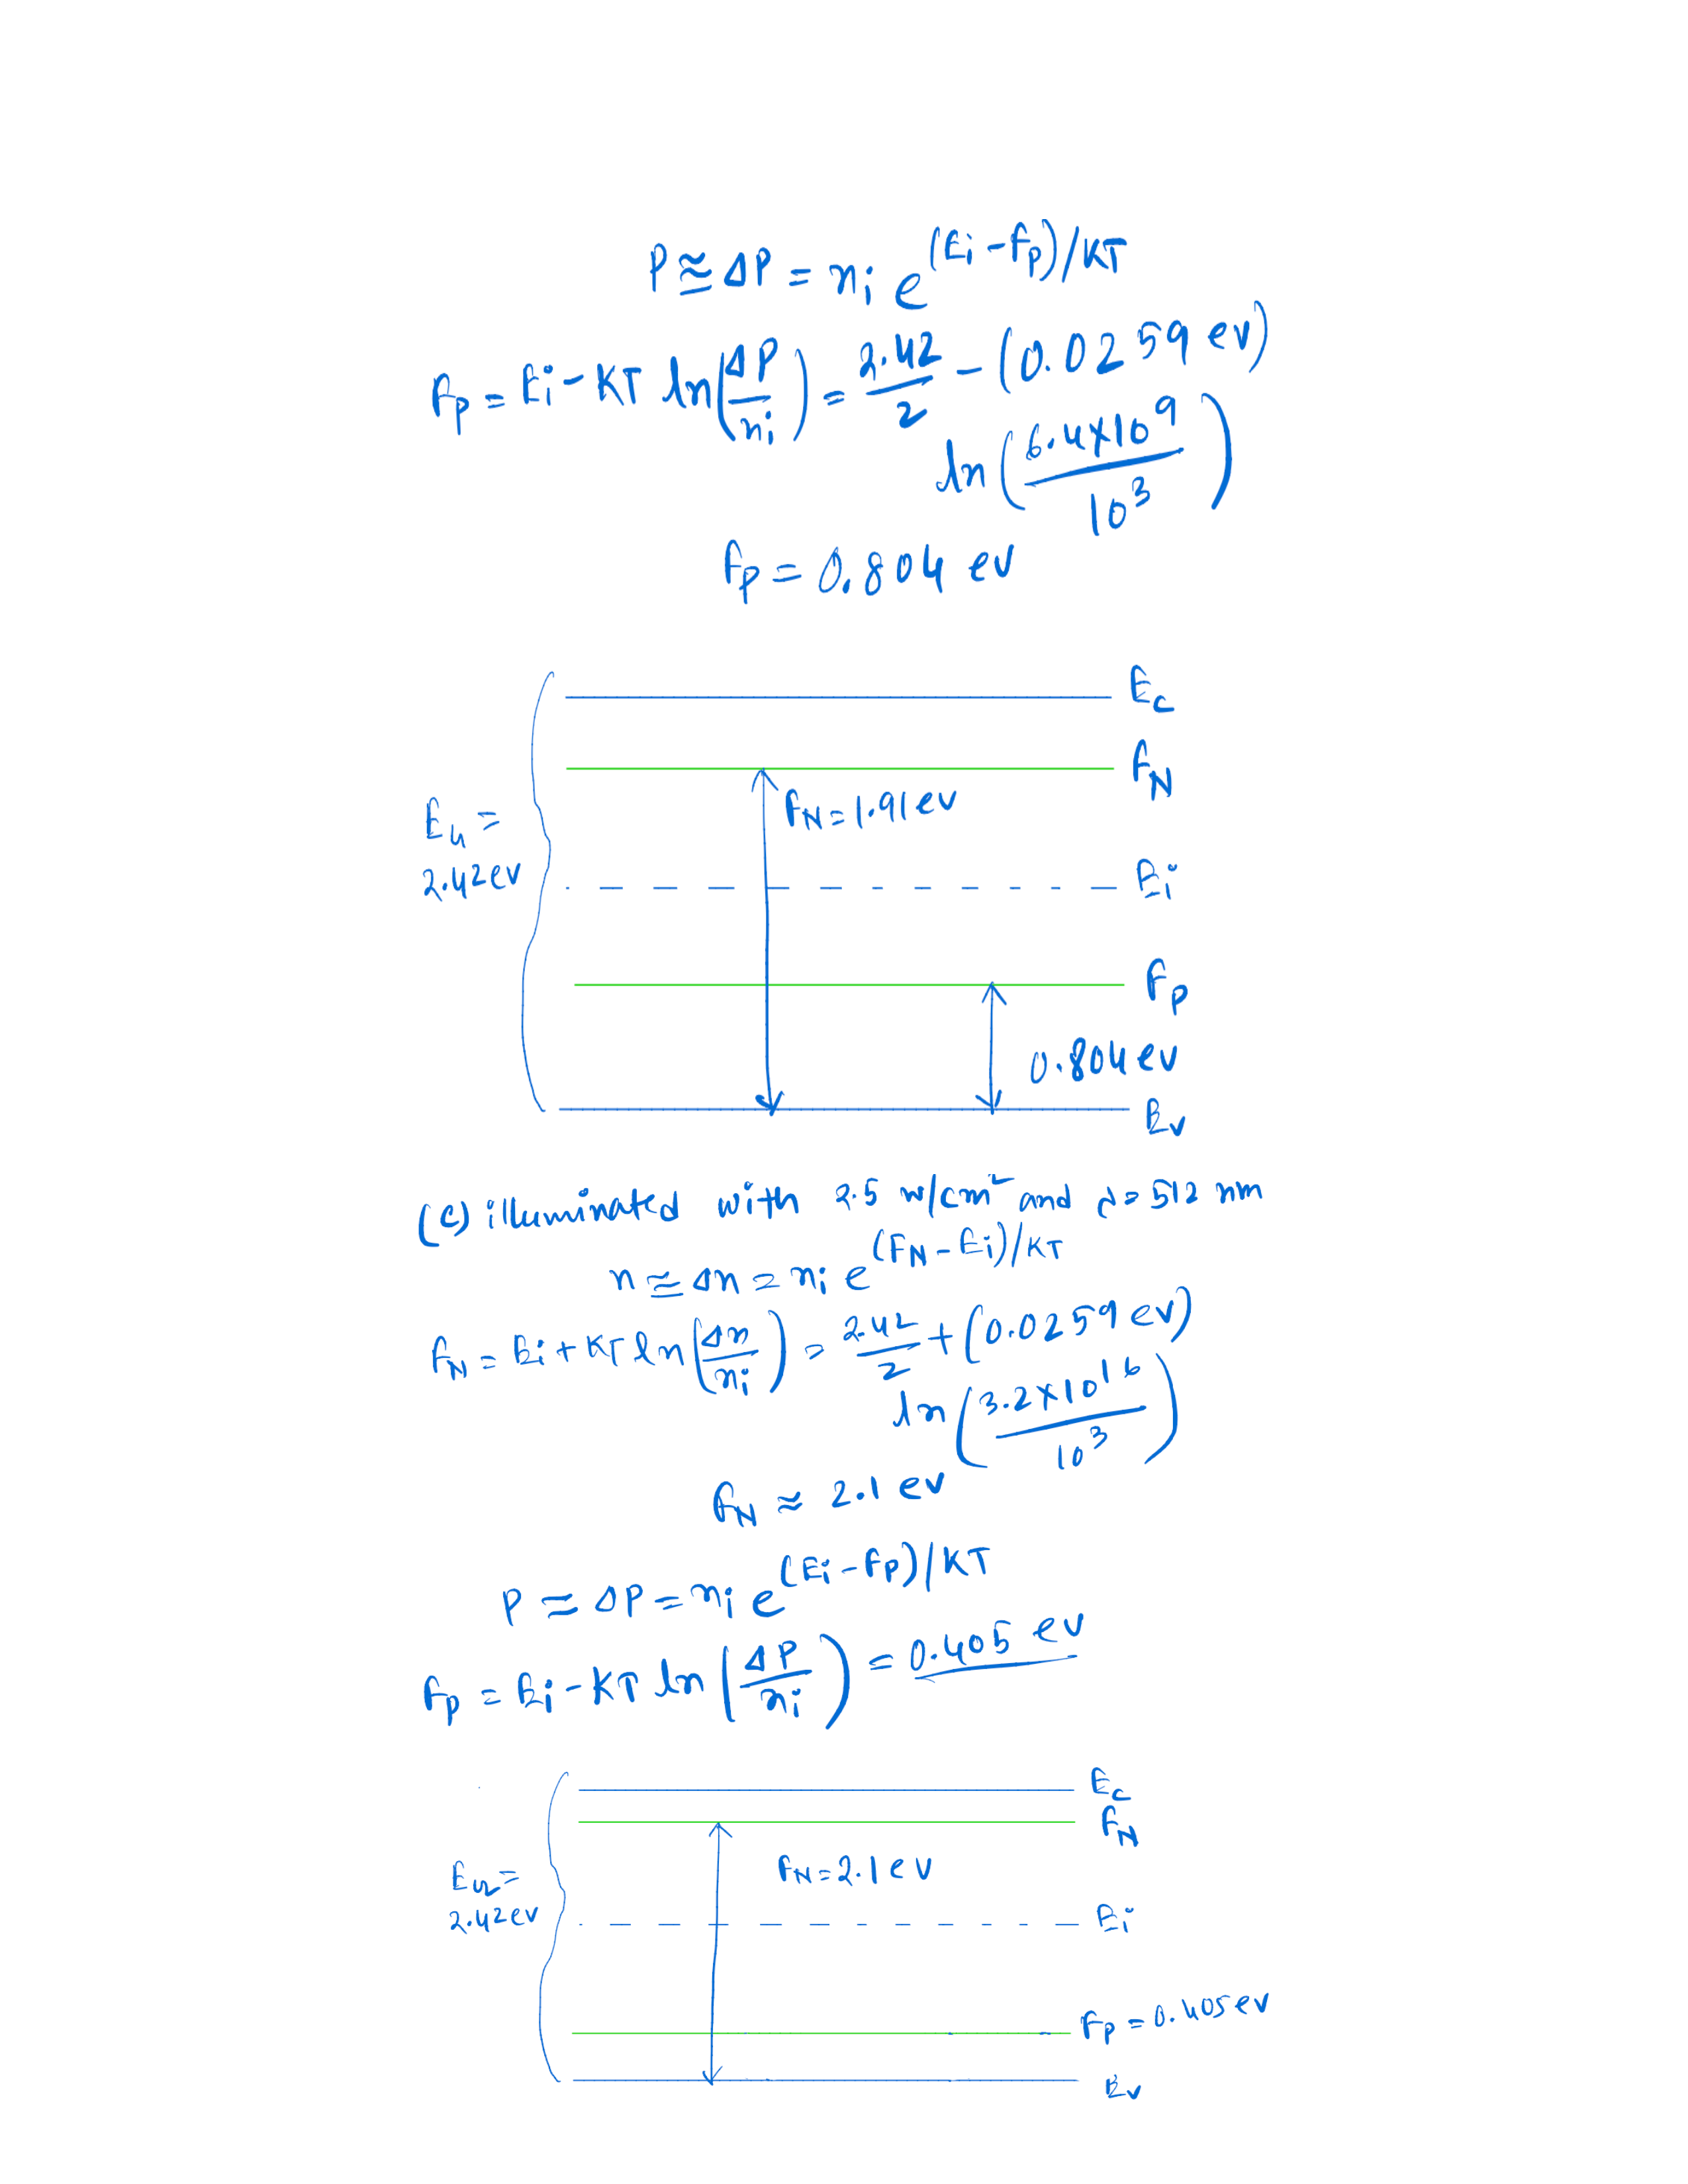 P ≅ ΔP = ni e^(Ei - Fp)/KT
Fp = Ei - KT ln(ΔP/ni) = 2.42/2 - (0.0259 ev)
ln(6.4×10^9/10^3)
Fp = 0.804 ev
Ec
FN
FN = 1.91 ev
EG =
2.42 ev
Ei
Fp
0.804 ev
Ev
(c) illuminated with 2.5 w/cm² and λ = 512 nm
n ≅ Δn = ni e^(FN - Ei)/KT
FN = Ei + KT ln(Δn/ni) = 2.42/2 + (0.0259 ev)
ln(3.2×10^16/10^3)
FN ≈ 2.1 ev
P ≅ ΔP = ni e^(Ei - Fp)/KT
Fp = Ei - KT ln(ΔP/ni) = 0.405 ev
Ec
FN
FN = 2.1 ev
EG =
2.42 ev
Ei
Fp = 0.405 ev
Ev